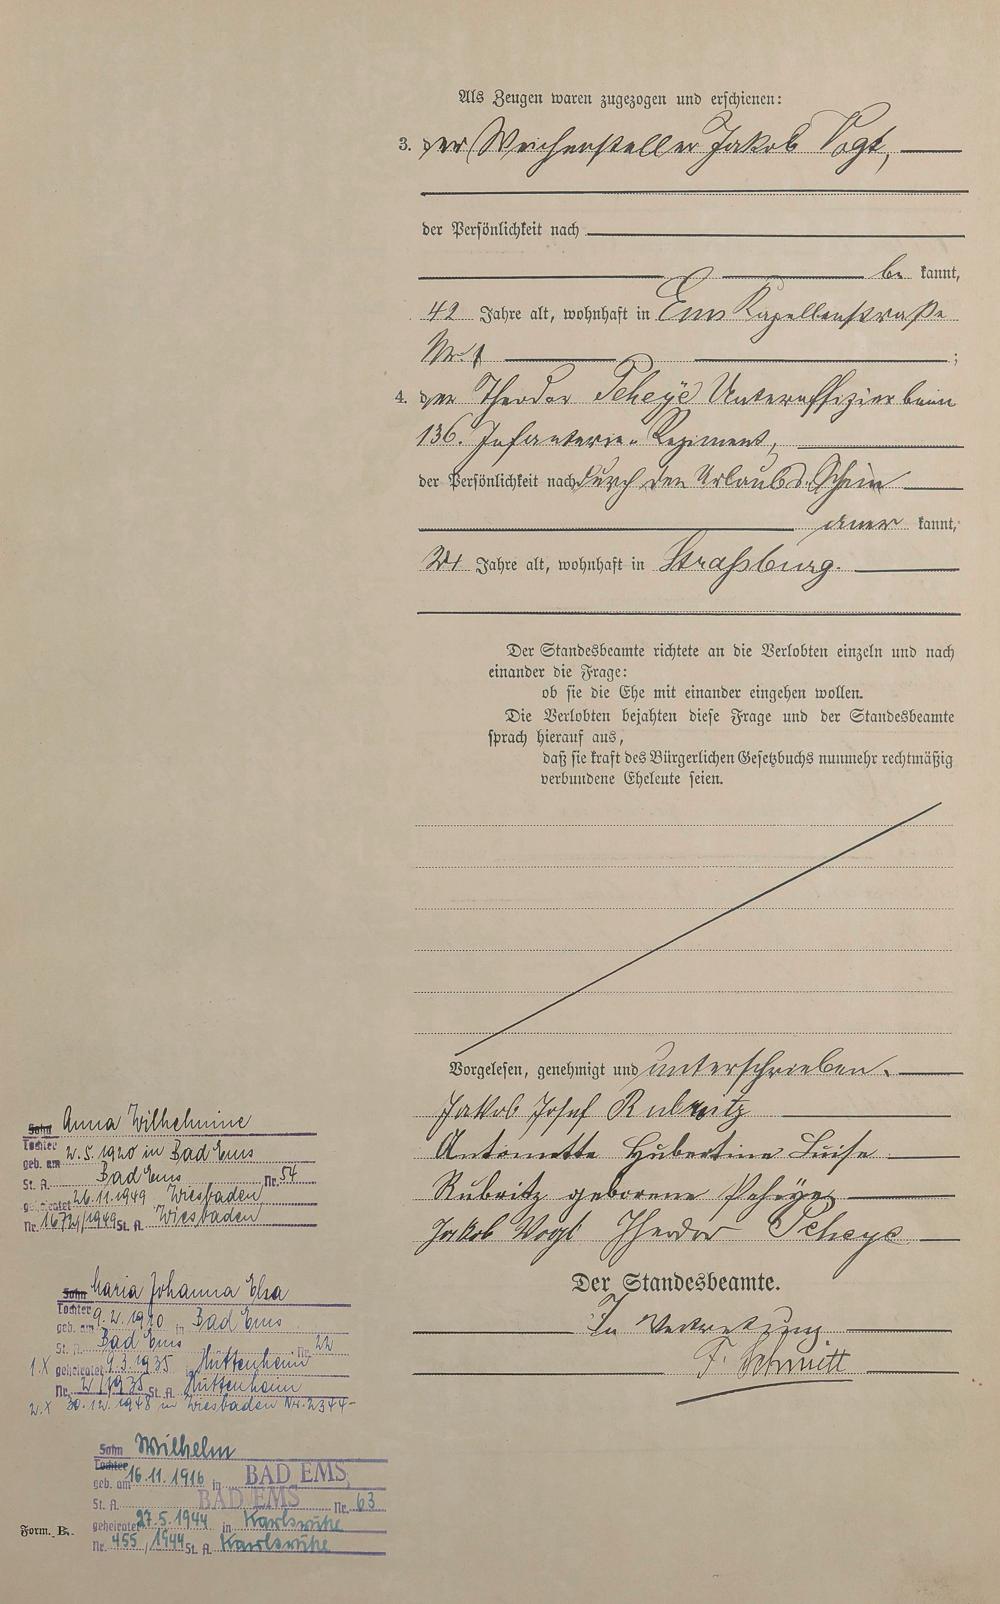 Als Zeugen waren zugezogen und erschienen:
3. der Weichensteller Jakob Vogt,
der Persönlichkeit nach
be kannt,
42 Jahre alt, wohnhaft in Ems Kapellenstraße
Nr. 1 ;
4. der Theodor Peheÿe Unteroffizier beim
136. Infanterie-Regiment,
der Persönlichkeit nach durch den Urlaubs-Schein
aner kannt,
Jahre alt, wohnhaft in Straßburg.
Der Standesbeamte richtete an die Verlobten einzeln und nach
einander die Frage:
ob sie die Ehe mit einander eingehen wollen.
Die Verlobten bejahten diese Frage und der Standesbeamte
sprach hierauf aus,
daß sie kraft des Bürgerlichen Gesetzbuchs nunmehr rechtmäßig
verbundene Eheleute seien.
Vorgelesen, genehmigt und unterschrieben.
Jakob Josef Rubritz
Antonette Hubertine Luise
Rubritz geborene Peheÿe
Jakob Vogt Theodor Peheye
Der Standesbeamte.
In Vertretung
F. Schmitt
Sohn Anna Wilhelmine
Tochter
geb. am 2.5.1920 in Bad Ems
St. A. Bad Ems Nr. 54
geheiratet 26.11.1949 Wiesbaden
Nr. 1672/1949 St. A. Wiesbaden
Sohn Maria Johanna Elsa
Tochter
geb. am 9.2.1910 in Bad Ems
St. A. Bad Ems Nr. 22
1.X geheiratet 9.3.1935 in Hüttenheim
Nr. 2/1935 St. A. Hüttenheim
2.X 30.12.1948 in Wiesbaden Nr. 2344-
Sohn Wilhelm
Tochter
geb. am 16.11.1916 in BAD EMS
St. A. BAD EMS Nr. 63
geheiratet 27.5.1944 in Karlsruhe
Nr. 455/1944 St. A. Karlsruhe
Form. B.